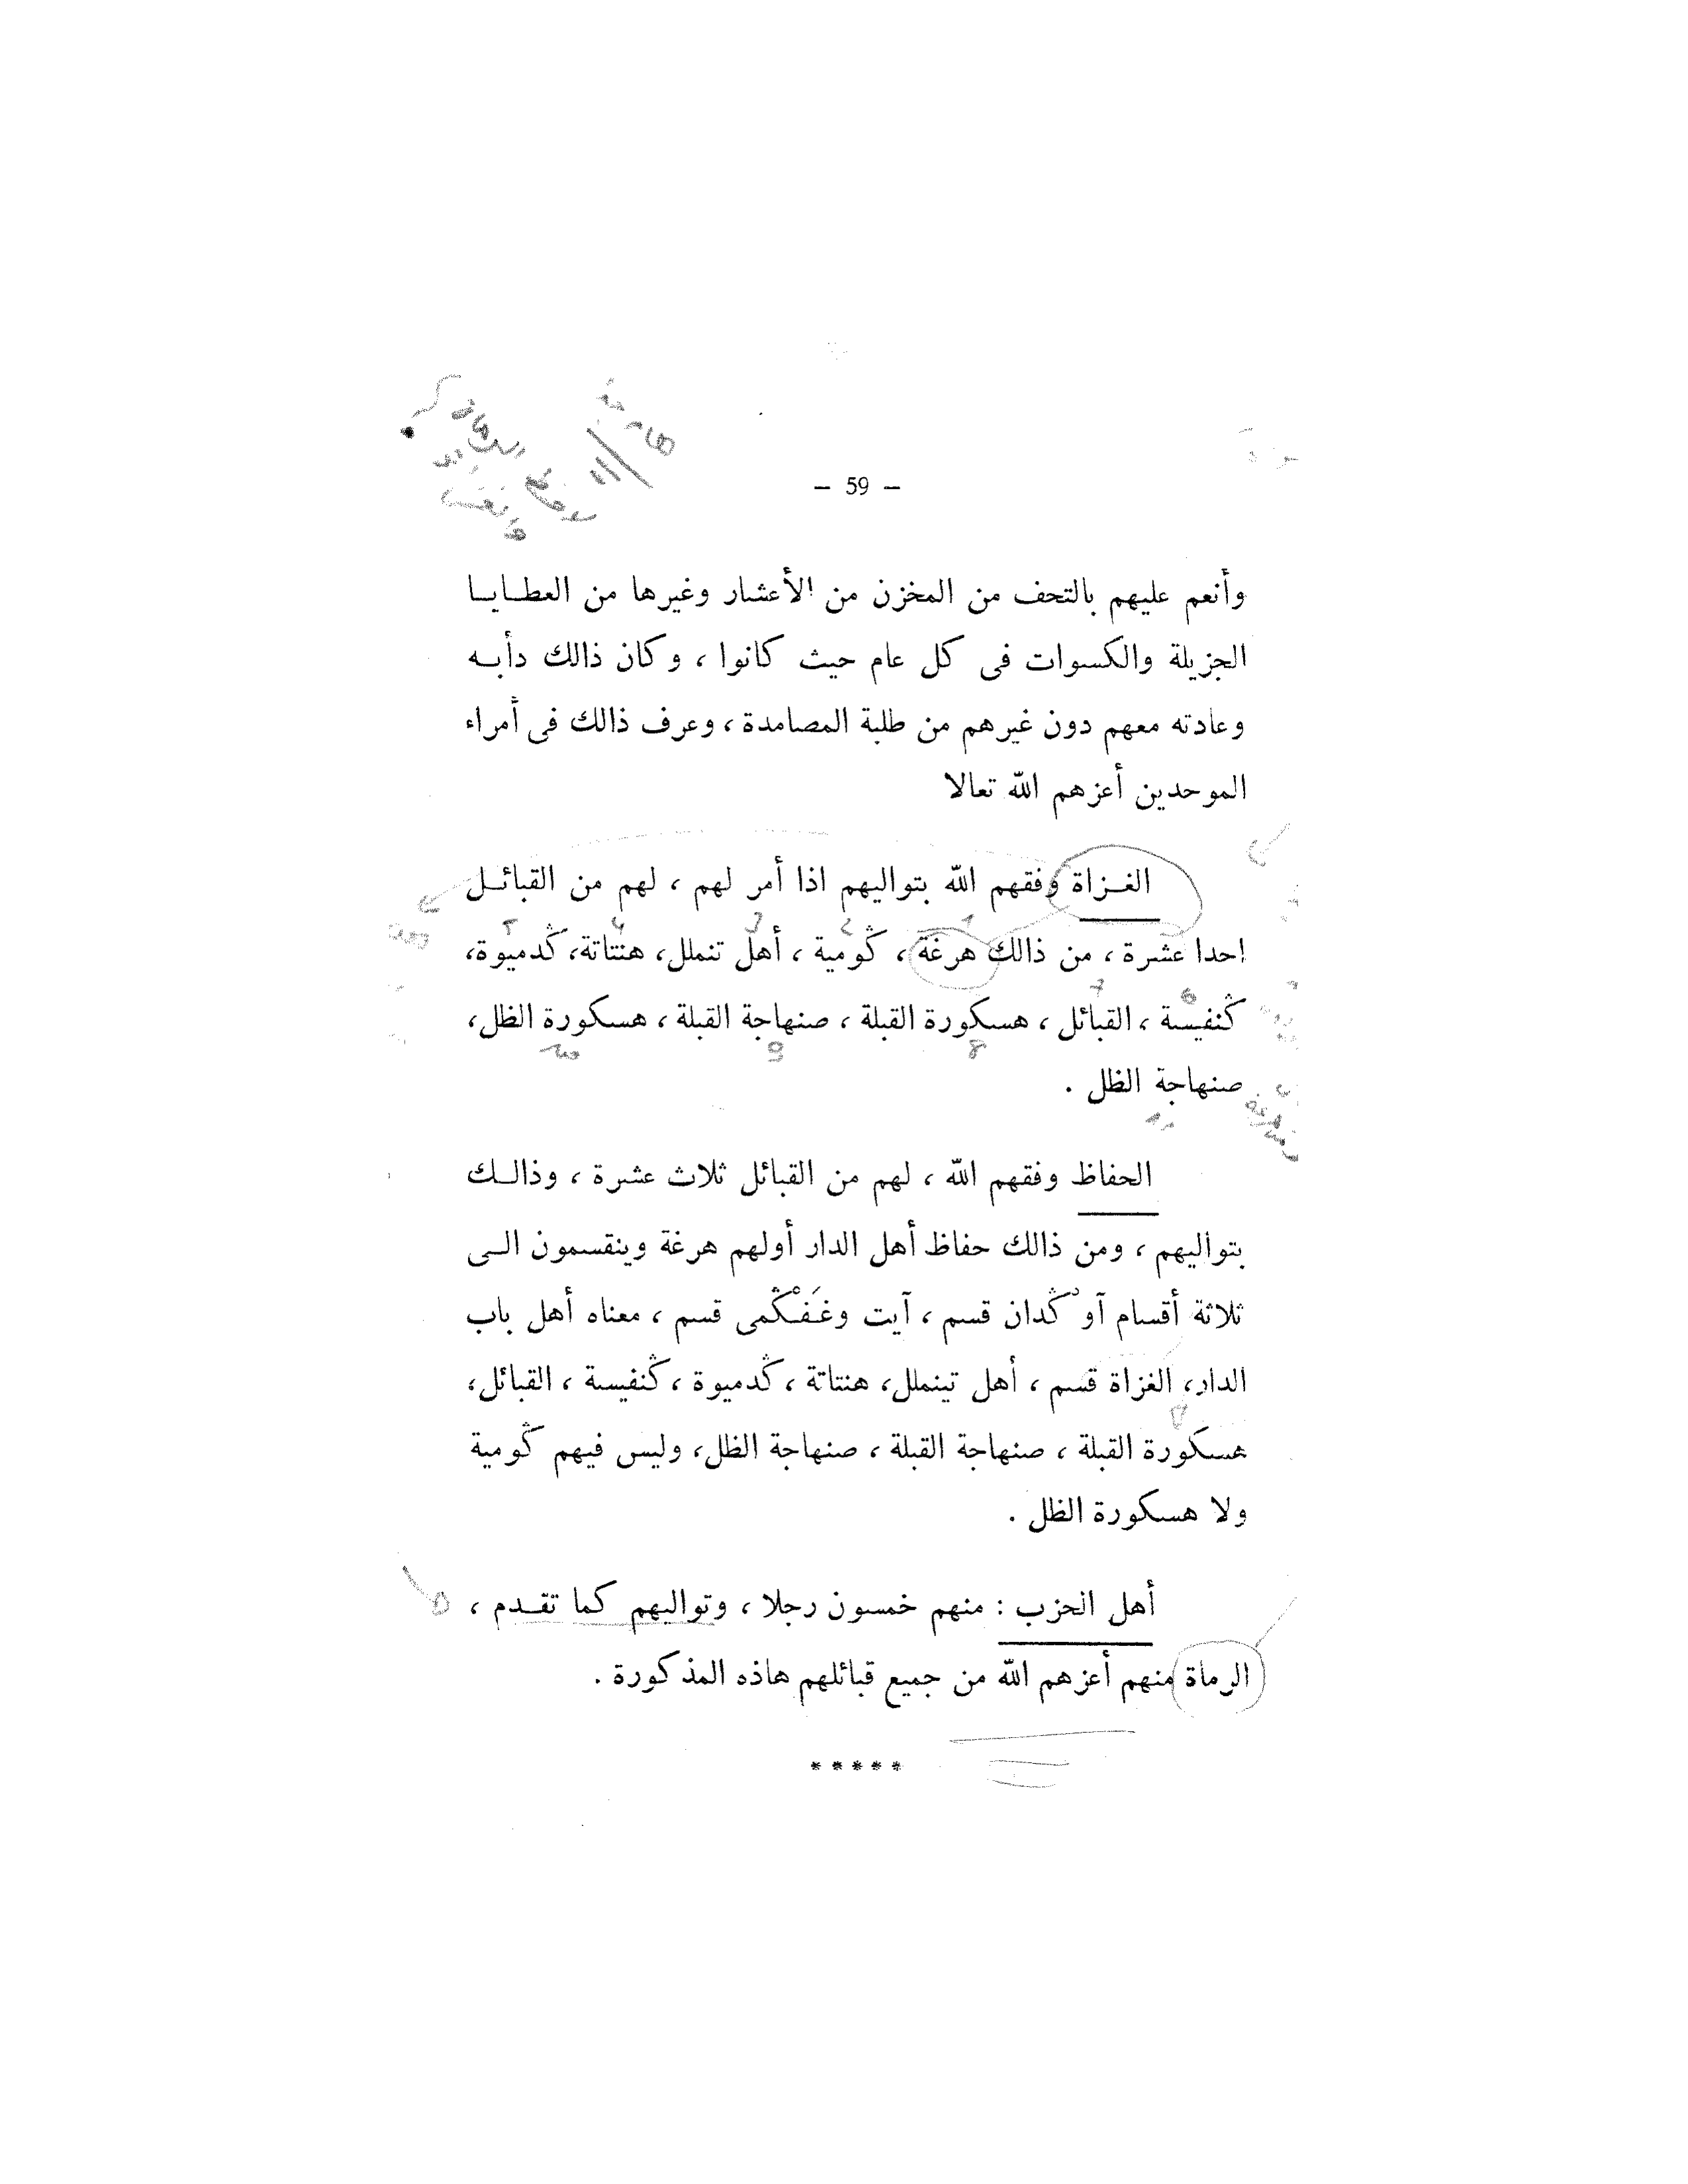 – 59 –
وأنعم عليهم بالتحف من المخزن من الأعشار وغيرها من العطـايـا
الجزيلة والكسوات فى كل عام حيث كانوا ، وكان ذالك دأبـه
وعادته معهم دون غيرهم من طلبة المصامدة ، وعرف ذالك فى أمراء
الموحدين أعزهم الله تعالا
الغـزاة وفقهم الله بتواليهم اذا أمر لهم ، لهم من القبائـل
احدا عشرة ، من ذالك هرغة ، ڭومية ، أهل تنملل، هنتاتة، ڭدميوة،
ڭنفيسة ، القبائل ، هسكورة القبلة ، صنهاجة القبلة ، هسكورة الظل،
صنهاجة الظل .
الحفاظ وفقهم الله ، لهم من القبائل ثلاث عشرة ، وذالـك
بتواليهم ، ومن ذالك حفاظ أهل الدار أولهم هرغة وينقسمون الـى
ثلاثة أقسام آوُ ڭدان قسم ، آيت وغَـفْـڭمى قسم ، معناه أهل باب
الدار، الغزاة قسم ، أهل تينملل، هنتاتة ، ڭدميوة ، ڭنفيسة ، القبائل،
هسكورة القبلة ، صنهاجة القبلة ، صنهاجة الظل، وليس فيهم ڭومية
ولا هسكورة الظل .
أهل الحزب : منهم خمسون رجلا ، وتواليهم كما تقـدم ،
الرماة منهم أعزهم الله من جميع قبائلهم هاذه المذكورة .
*****